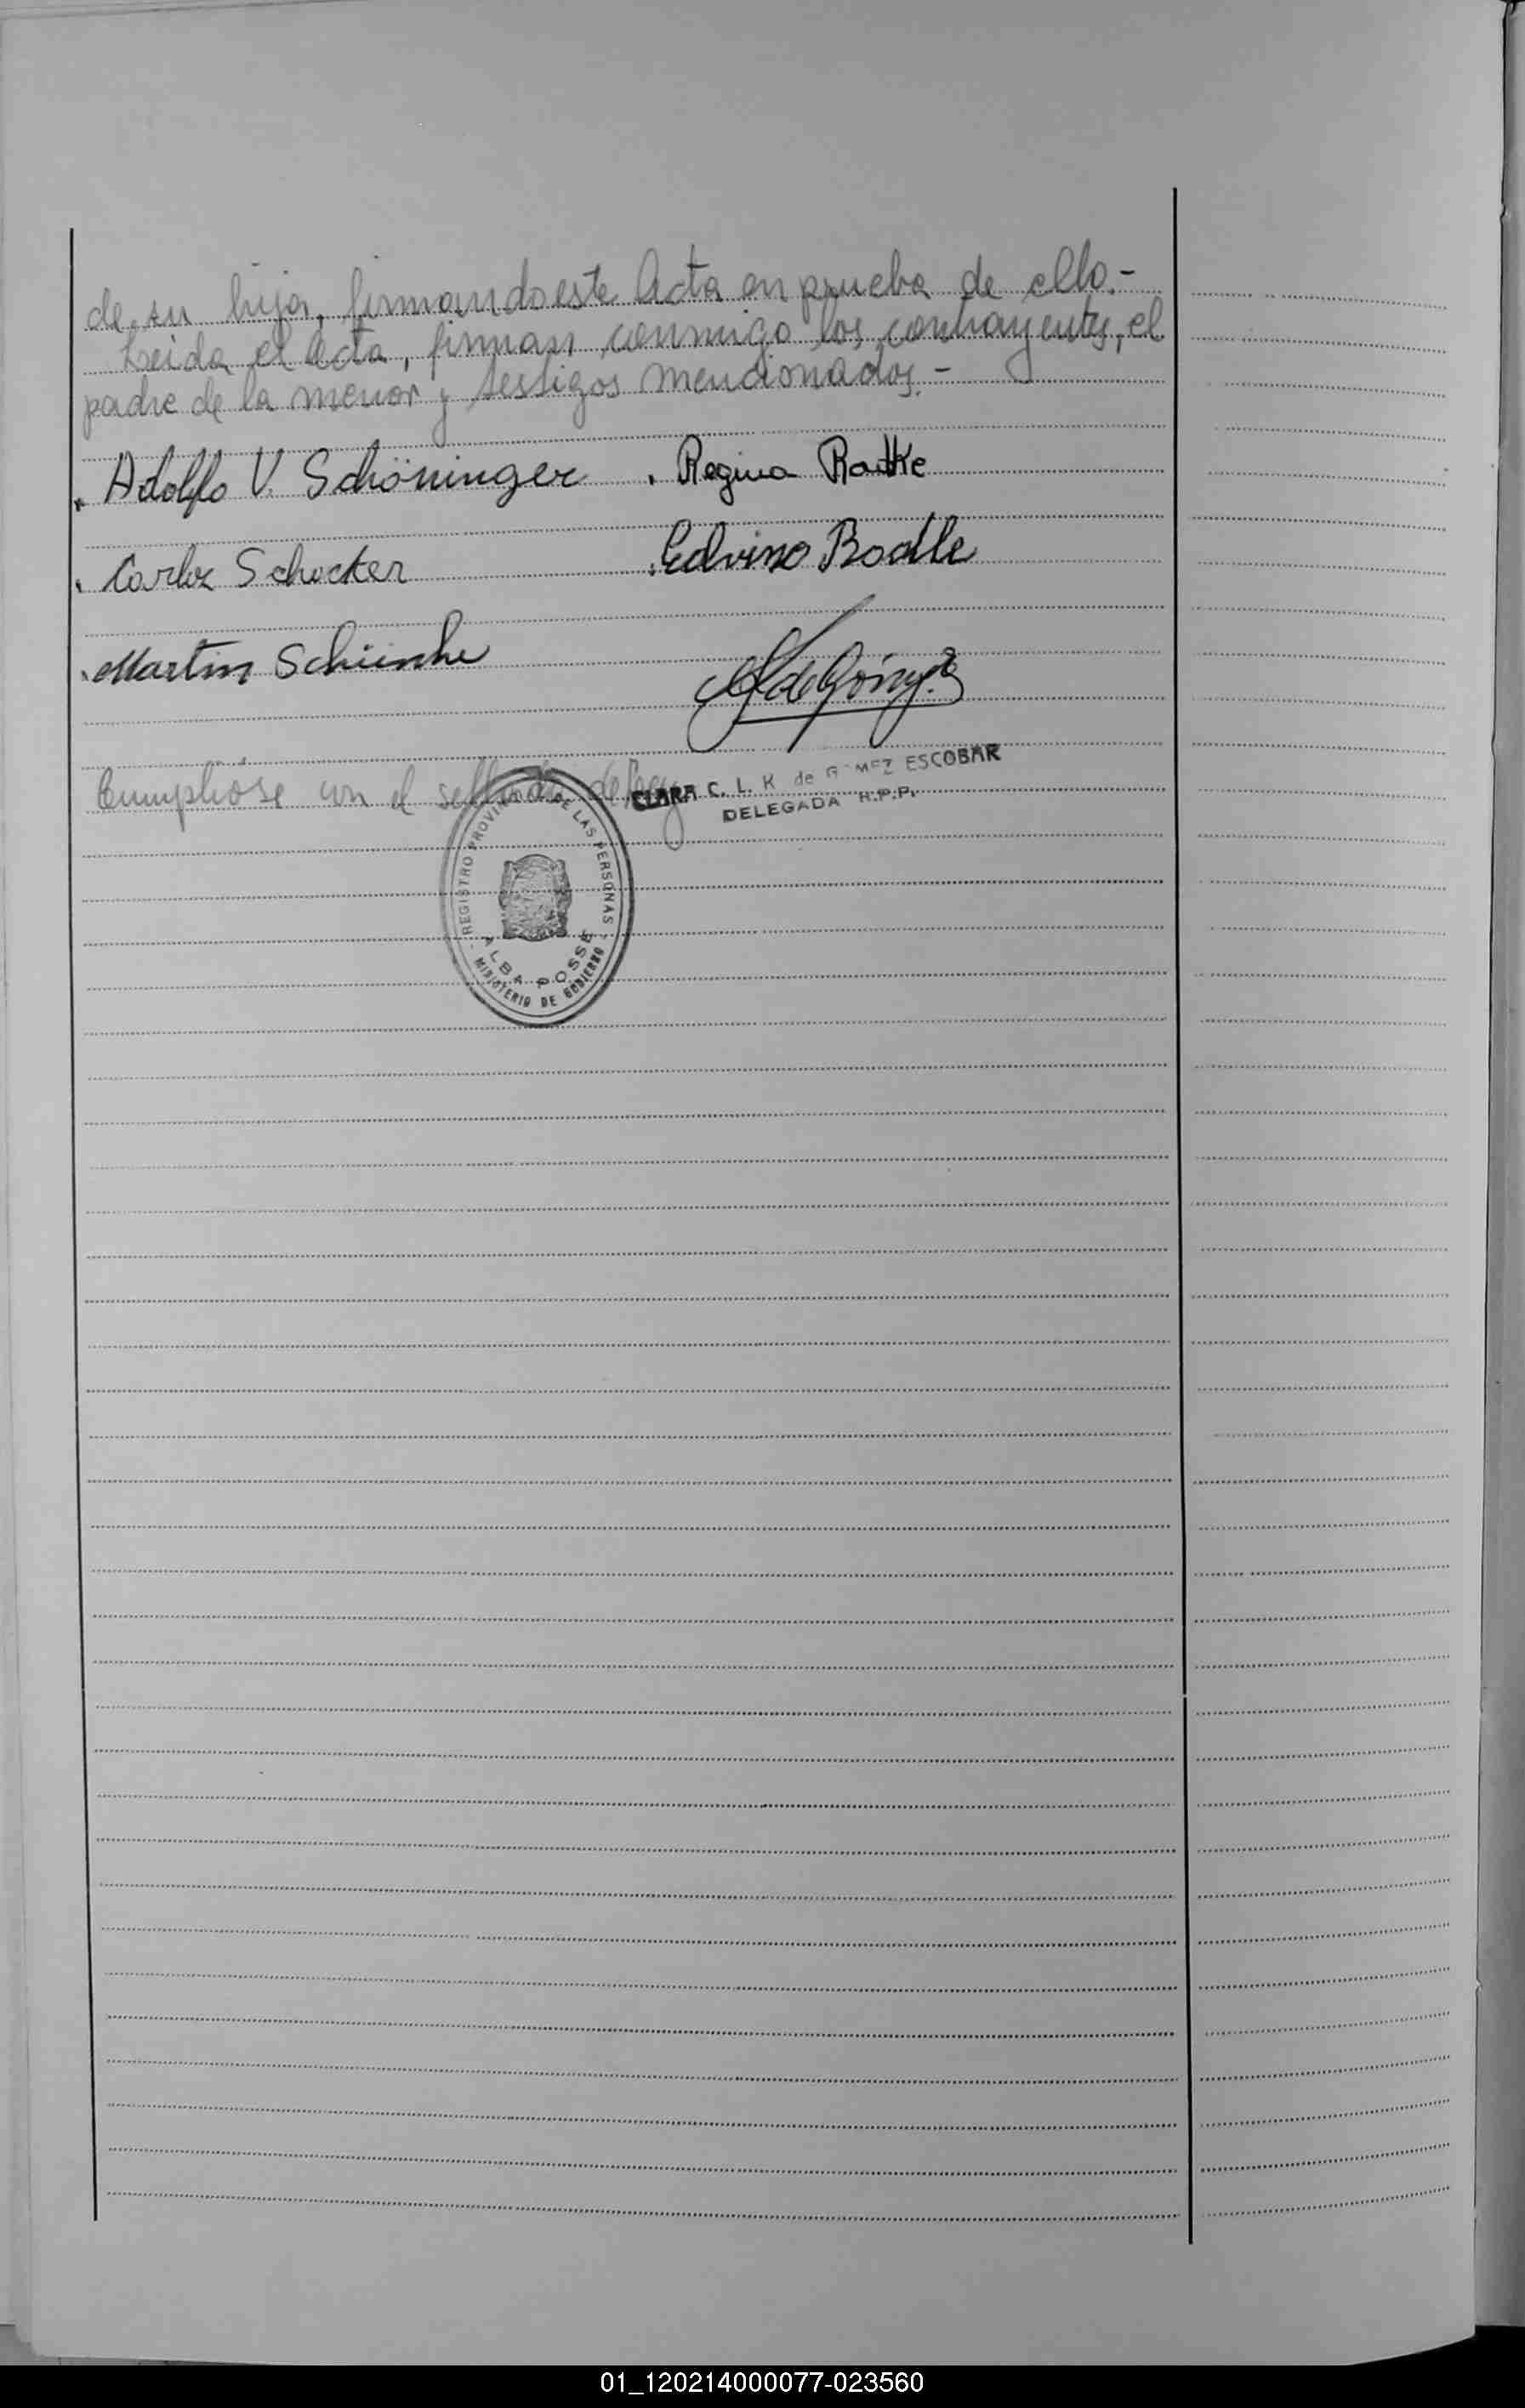 de su hija, firmando este Acta en prueba de ello.-
Leida el Acta, firman conmigo los contrayentes, el
padre de la menor y testigos mencionados.-
Adolfo V. Schöninger . Regina Radtke
Carlos Schocker Edvino
Martin Schünke
Cumplióse con el sellado de ley
CLARA C. L. K de GOMEZ ESCOBAR
DELEGADA R.P.P.
REGISTRO PROVINCIAL DE LAS PERSONAS
ALBA POSSE
MINISTERIO DE GOBIERNO
01_120214000077-023560